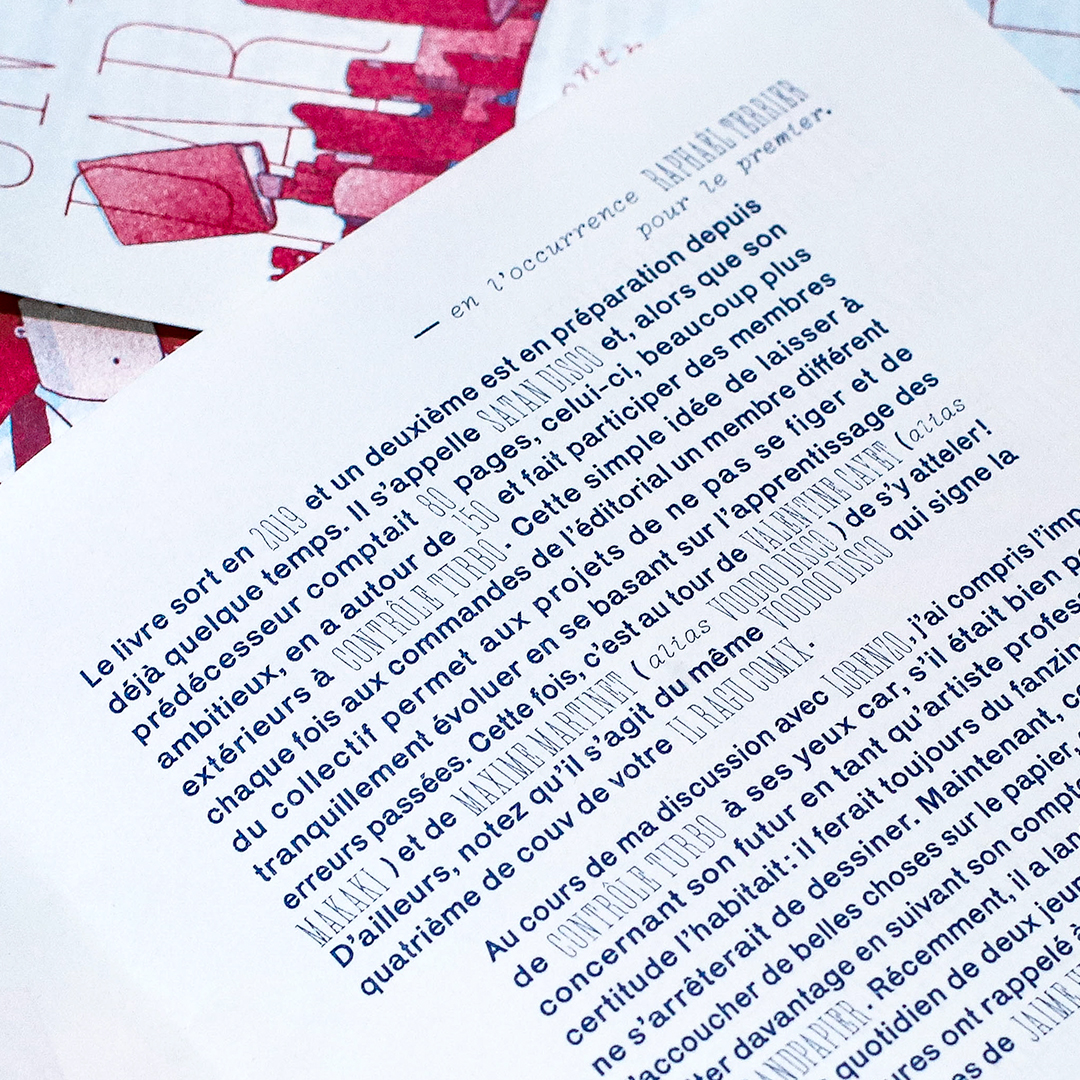 — en l'occurrence RAPHAËL TERRIER
pour le premier.
Le livre sort en 2019 et un deuxième est en préparation depuis
déjà quelque temps. Il s'appelle SATAN DISCO et, alors que son
prédécesseur comptait 80 pages, celui-ci, beaucoup plus
ambitieux, en a autour de 150 et fait participer des membres
extérieurs à CONTRÔLE TURBO. Cette simple idée de laisser à
chaque fois aux commandes de l'éditorial un membre différent
du collectif permet aux projets de ne pas se figer et de
tranquillement évoluer en se basant sur l'apprentissage des
erreurs passées. Cette fois, c'est au tour de VALENTINE GAYET (alias
MAKAKI ) et de MAXIME MARTINET ( alias VOODOO DISCO ) de s'y atteler!
D'ailleurs, notez qu'il s'agit du même VOODOO DISCO qui signe la
quatrième de couv de votre IL RAGU COMIX.
Au cours de ma discussion avec LORENZO, j'ai compris l'imp
de CONTRÔLE TURBO à ses yeux car, s'il était bien
concernant son futur en tant qu'artiste profess
certitude l'habitait : il ferait toujours du fanzin
ne s'arrêterait de dessiner. Maintenant,
accoucher de belles choses sur le papier,
ter davantage en suivant son compt
ANDPAPIER. Récemment, il a lan
quotidien de deux jeu
ures ont rappelé à
es de JAIME